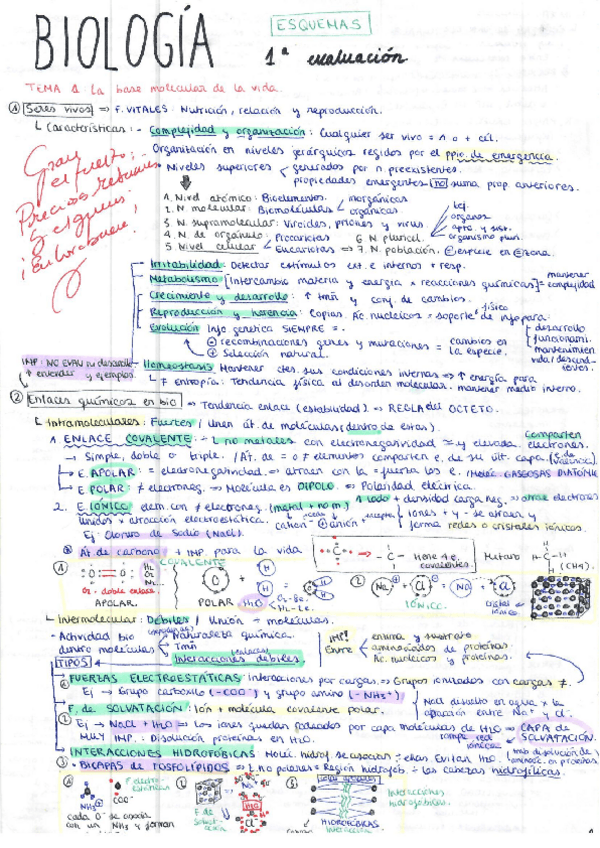 BIOLOGÍA
ESQUEMAS
1ª evaluación
TEMA 1: La base molecular de la vida.
① Seres vivos ⇒ F. VITALES: Nutrición, relación y reproducción.
↳ Características: - Complejidad y organización: Cualquier ser vivo = 1 o + cél.
Organización en niveles jerárquicos regidos por el ppio. de emergencia.
• Niveles superiores generados por n. preexistentes.
propiedades emergentes no suma prop. anteriores.
Gran esfuerzo:
Preciosos
¡Enhorabuena!
1. Nivel atómico: Bioelementos.
2. N. molecular: Biomoléculas inorgánicas orgánicas.
3. N. supramolecular: Viroides, priones y virus
4. N. de orgánulo: Procariotas
5. Nivel celular Eucariotas ⇒ 7. N. población: especie en zona.
6. N. pluricel.
tej.
órganos
apto. y sist.
organismo pluri.
Irritabilidad: Detectar estímulos ext. e internos + resp.
Metabolismo [Intercambio materia y energía x reacciones químicas] = mantener complejidad
Crecimiento y desarrollo: ↑ tmñ y conj. de cambios.
Reproducción y herencia: Copias. Ac. nucleicos = soporte físico de info para:
desarrollo
funcionami.
mantenimien
vida/descenden.
Evolución Info. genética SIEMPRE =.
⊕ recombinaciones genes y mutaciones = cambios en la especie.
⊕ Selección natural.
IMP: NO EVAU su desarrollo
↑ entender y ejemplos.
Homeostasis Mantener ctes. sus condiciones internas ⇒ ↑ energía para
↳ ≠ entropía: Tendencia física al desorden molecular. mantener medio interno.
② Enlaces químicos en bio ⇒ Tendencia enlace (estabilidad) ⇒ REGLA del OCTETO.
↳ Intramoleculares: Fuertes / Unen át. de moléculas (dentro de estas).
1. ENLACE COVALENTE: ÷ no metales con electronegatividad ≃ y elevada. Comparten electrones.
→ Simple, doble o triple. / Át. de = o ≠ elementos comparten e. de su últ. capa. (e. de valencia).
E. APOLAR: = electronegatividad. ⇒ atraen con la = fuerza los e. / Moléc. GASEOSAS DIATÓMIC
E. POLAR: ≠ electroneg. ⇒ Molécula es DIPOLO ⇒ Polaridad eléctrica.
2. E. IÓNICO: elem. con ≠ electroneg. (metal + no m.) 1 lado + densidad carga neg. ⇒ atrae electrones
Unidos x atracción electroestática. catión - anión iones + y - se atraen y forma redes o cristales iónicos.
cede
acepta
Ej: Cloruro de Sodio (NaCl).
⊛ Át. de carbono ↑ IMP. para la vida
C
Metano
(CH4).
COVALENTE
O = O
H2
O2
N2
O2 - doble enlace
APOLAR.
POLAR H2O
Na
Cl
IÓNICO.
Cristal iónico
↳ Intermolecular: Débiles / Unión ÷ moléculas.
- Actividad bio dentro moléculas
Naturaleza química.
Tmñ
Interacciones débiles.
IMP! Entre
enzima y sustrato.
aminoácidos de proteínas.
Ac. nucleicos y proteínas.
TIPOS
① FUERZAS ELECTROESTÁTICAS: interacciones por cargas. ⇒ Grupos ionizados con cargas ≠.
Ej → Grupo carboxilo (-COO⁻) y grupo amino (-NH3⁺)
F. de SOLVATACIÓN: Ión + molécula covalente polar.
NaCl disuelto en agua x la atracción entre Na⁺ y Cl⁻.
② Ej → NaCl + H2O ⇒ los iones quedan rodeados por capa moléculas de H2O ⇒ CAPA DE SOLVATACIÓN.
MUY IMP.: Disolución proteínas en H2O.
rompe red iónica
INTERACCIONES HIDROFÓBICAS: Moléc. hidrof. se asocian ÷ ellas. Evitan H2O.
③ • BICAPAS DE FOSFOLÍPIDOS ⇒ Z. no polares = Región hidrofób. ÷ las cabezas hidrofílicas.
F. electroestáticas
NH3⁺
COO⁻
cada O⁻ se asocia con un NH3 y forman
F. de solvatación
Na⁺
H2O
Cl⁻
HIDROFÓBICAS
Interacciones hidrofóbicas.